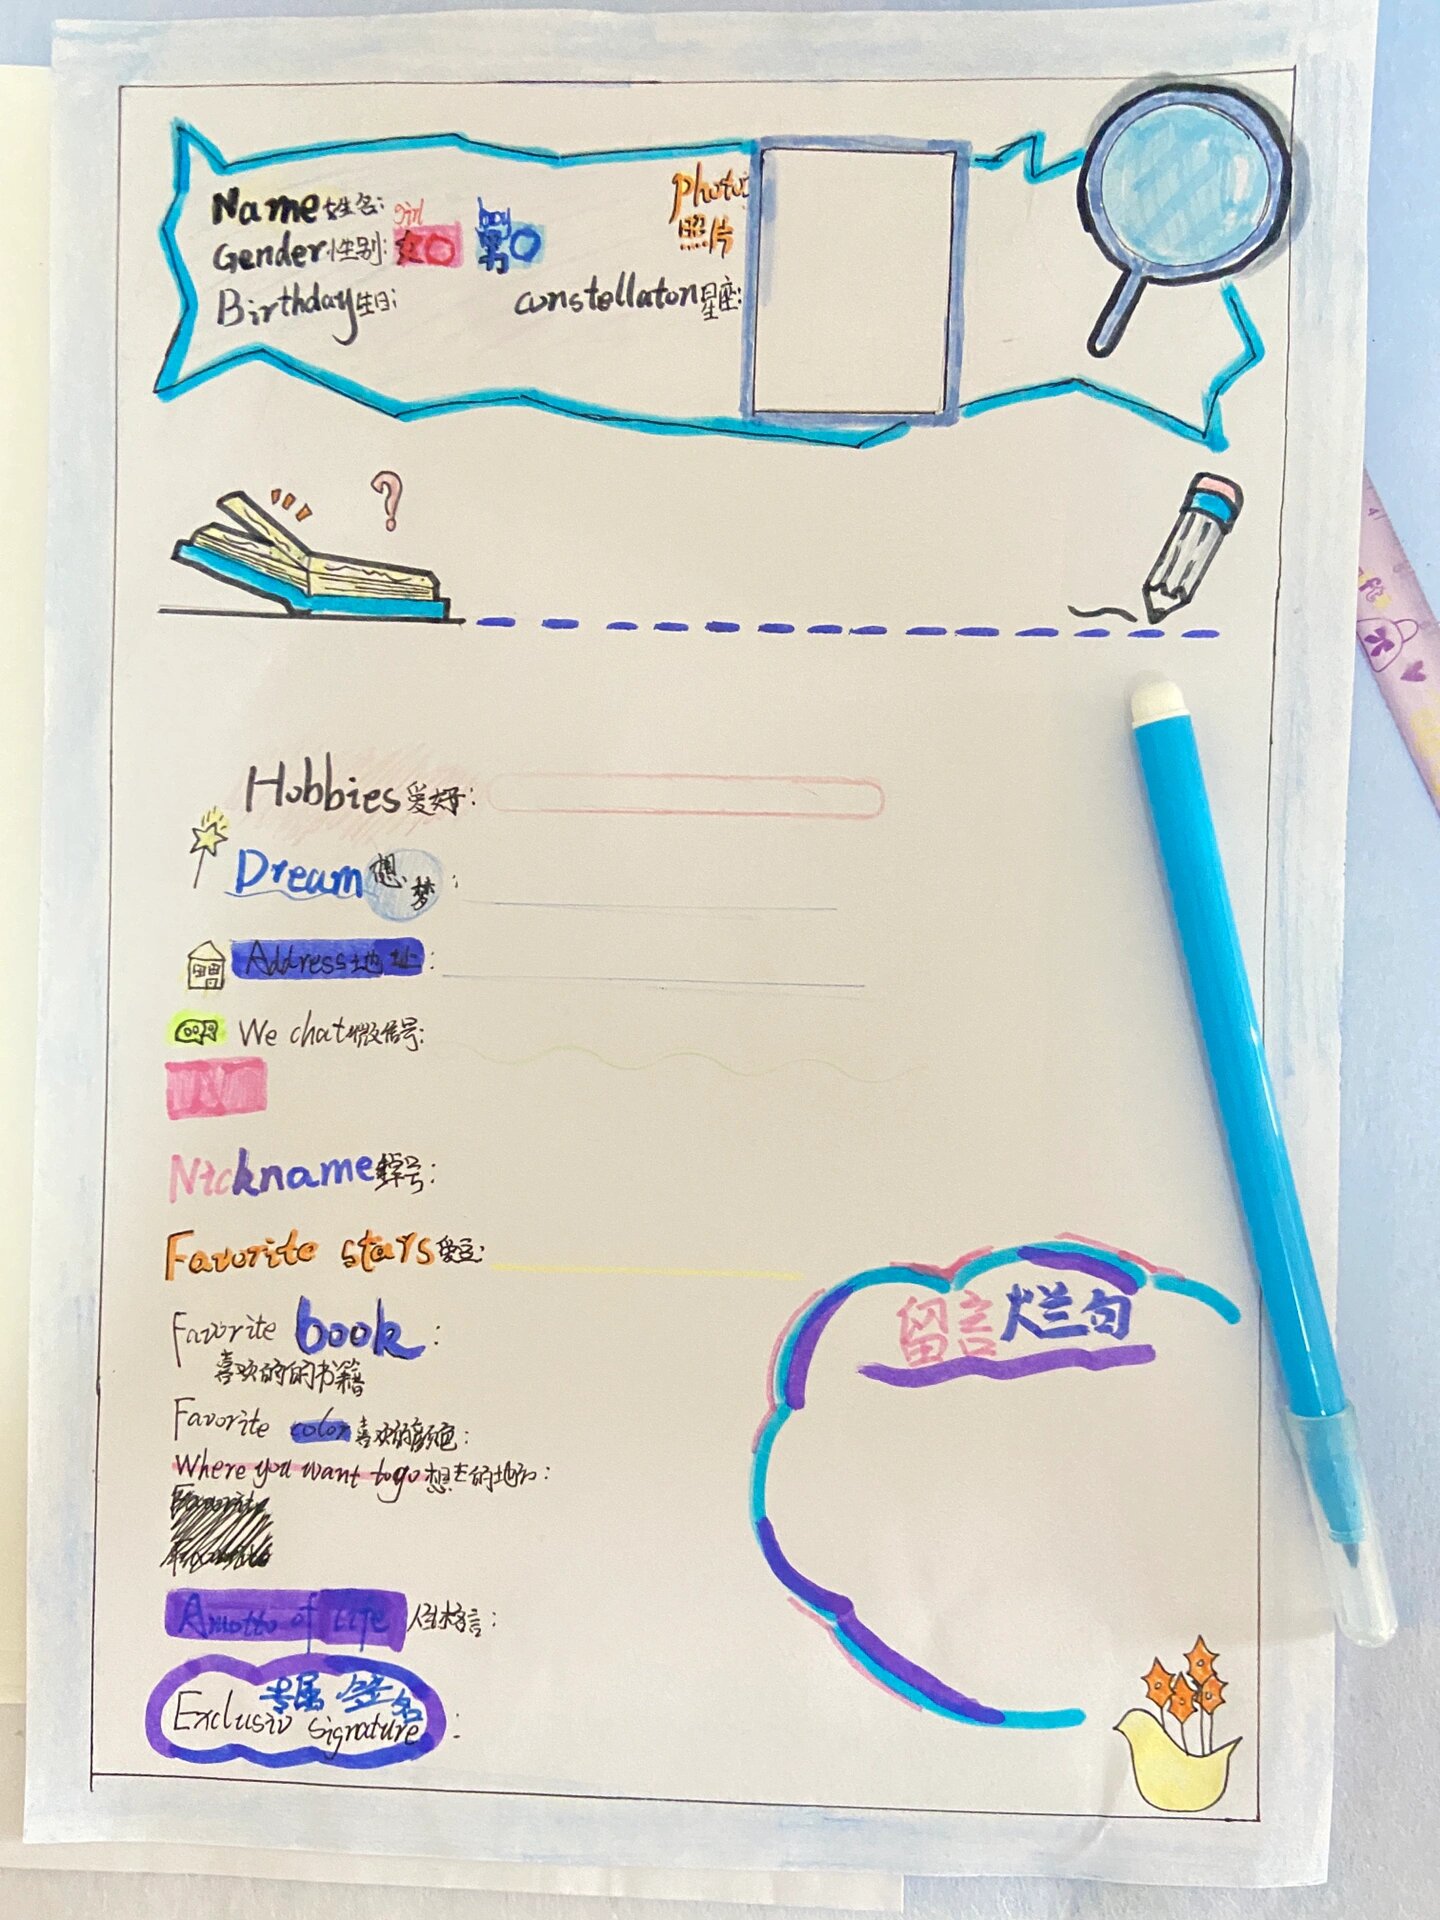 Name姓名:
girl
boy
Gender性别: 女 男
Birthday生日:
constellaton星座:
photo:
照片
?
Hobbies爱好:
Dream 梦想:
Address地址:
We chat微信号:
Nickname绰号:
Favorite stars爱豆:
Favorite book:
喜欢的的书籍
Favorite color喜欢的颜色:
Where you want to go想去的地方:
A motto of life 人生格言:
专属签名
Exclusiv signature:
留言烂句